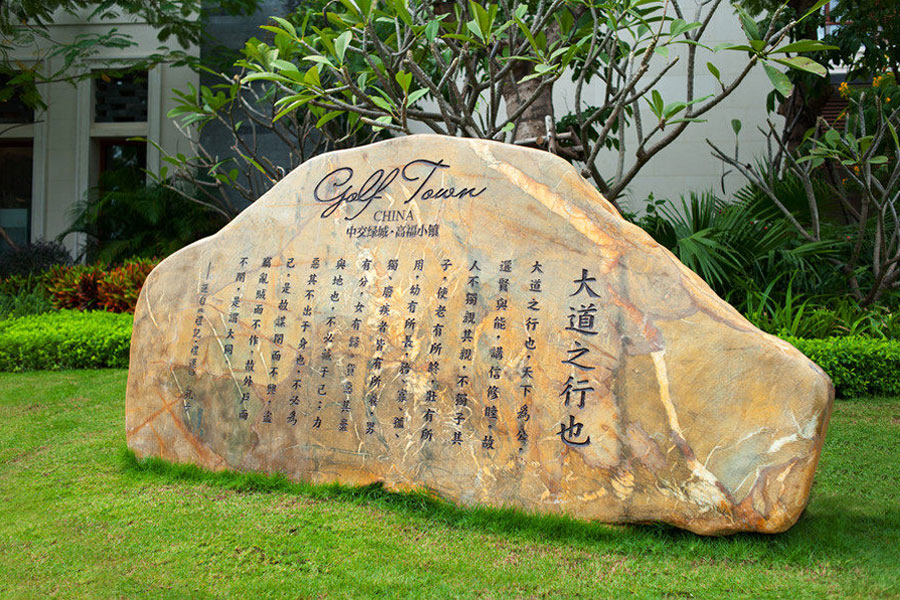 Golf Town
CHINA
中交绿城·高福小镇
大道之行也
大道之行也,天下為公,
選賢與能,講信修睦,故
人不獨親其親,不獨子其
子,使老有所終,壯有所
用,幼有所長,矜、寡、孤、
獨、廢疾者皆有所養,男
有分,女有歸。貨惡其棄
與地也,不必藏于己;力
惡其不出于身也,不必為
己,是故謀閉而不興,盜
竊亂賊而不作,故外戶而
不閉,是謂大同
——選自《禮記·禮運》